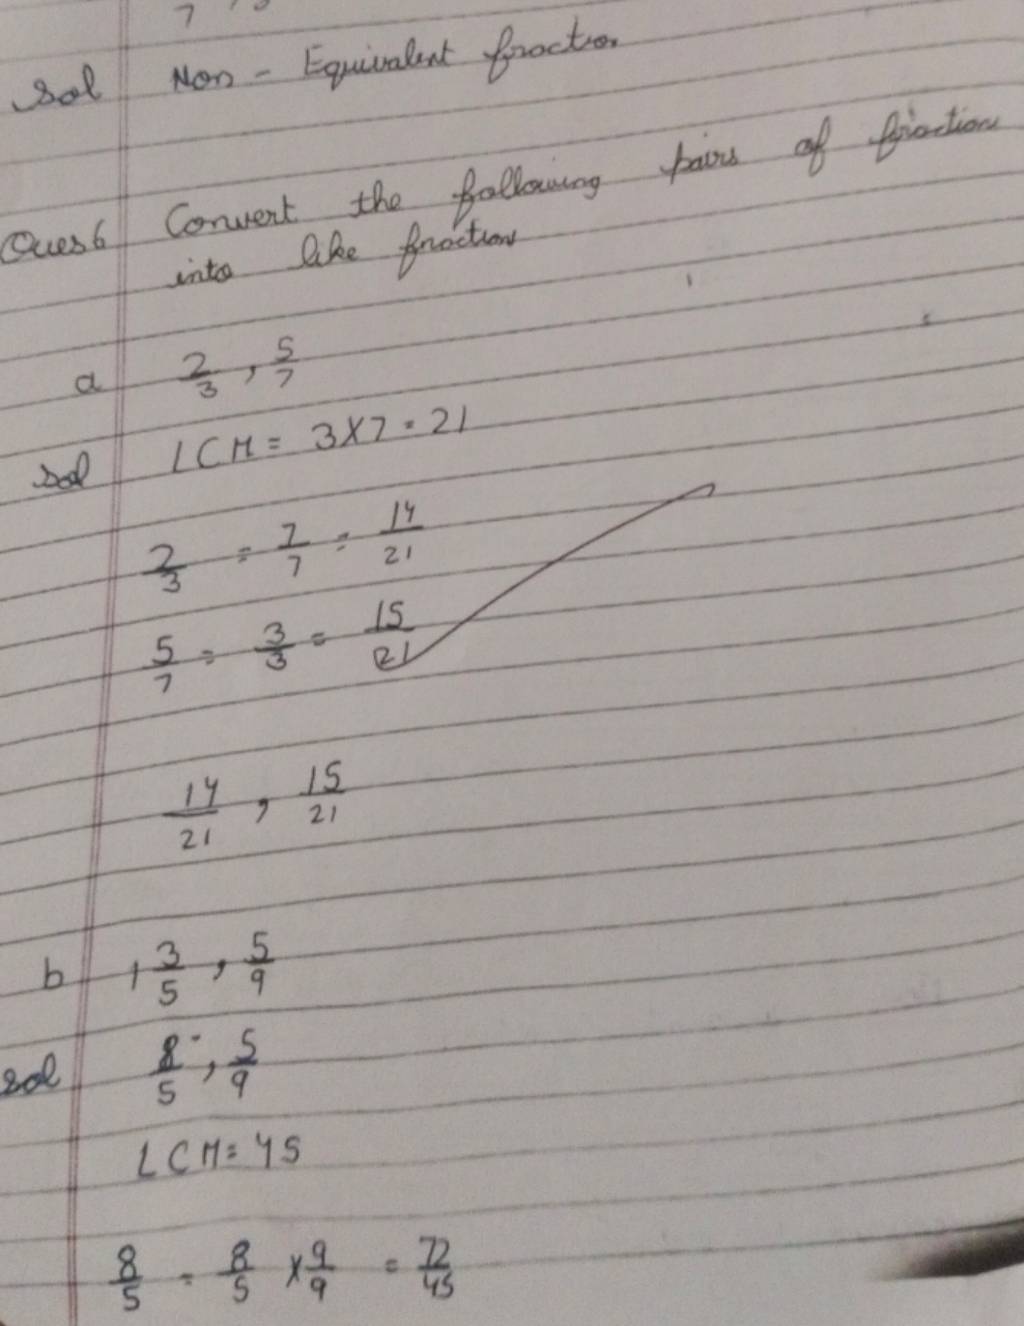 Sol Non - Equivalent fraction
Ques 6 Convert the following pairs of fraction
into like fraction
a 2/3 , 5/7
Sol LCM = 3X7 = 21
2/3 = 7/7 = 14/21
5/7 = 3/3 = 15/21
14/21 , 15/21
b 1 3/5 , 5/9
Sol 8/5 , 5/9
LCM = 45
8/5 = 8/5 x 9/9 = 72/45